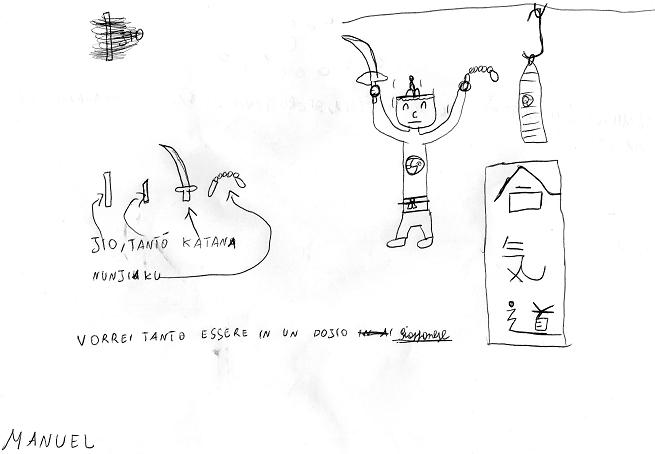 合
気
道
JIO, TANTŌ KATANA
NUNJIAKU
VORREI TANTO ESSERE IN UN DOJIO giapponese
MANUEL